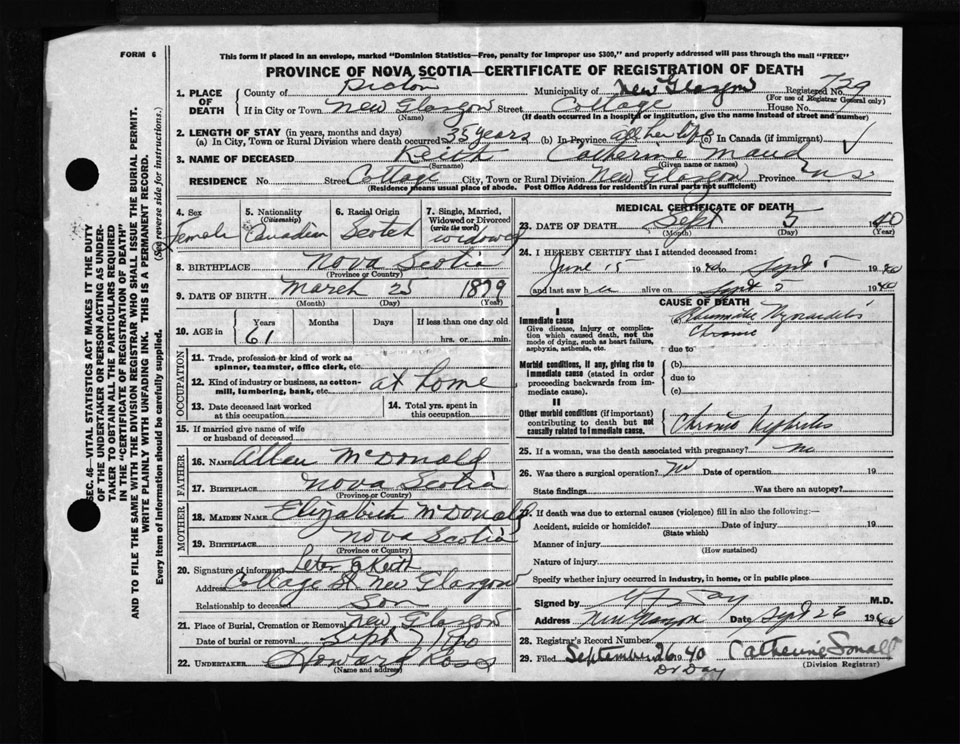 FORM 6
This form if placed in an envelope, marked "Dominion Statistics—Free, penalty for improper use $300," and properly addressed will pass through the mail "FREE"
PROVINCE OF NOVA SCOTIA—CERTIFICATE OF REGISTRATION OF DEATH
1. PLACE OF DEATH County of Pictou Municipality of New Glasgow Registered No. 729
(For use of Registrar General only)
If in City or Town New Glasgow Street College House No.
(Name) (If death occurred in a hospital or institution, give the name instead of street and number)
2. LENGTH OF STAY (in years, months and days)
(a) In City, Town or Rural Division where death occurred 35 years (b) In Province all her life (c) In Canada (if immigrant)
3. NAME OF DECEASED Keith Catherine Maud
(Surname) (Given name or names)
RESIDENCE No. Street College City, Town or Rural Division New Glasgow Province N S
(Residence means usual place of abode. Post Office Address for residents in rural parts not sufficient)
4. Sex female
5. Nationality (Citizenship) Canadian
6. Racial Origin Scotch
7. Single, Married, Widowed or Divorced (write the word) widowed
8. BIRTHPLACE Nova Scotia
(Province or Country)
9. DATE OF BIRTH March 25 1879
(Month) (Day) (Year)
10. AGE in Years Months Days If less than one day old
61 hrs. or min.
OCCUPATION
11. Trade, profession or kind of work as spinner, teamster, office clerk, etc.
12. Kind of industry or business, as cotton-mill, lumbering, bank, etc. at home
13. Date deceased last worked at this occupation
14. Total yrs. spent in this occupation
15. If married give name of wife or husband of deceased
FATHER
16. Name Allan McDonald
17. Birthplace Nova Scotia
(Province or Country)
MOTHER
18. Maiden Name Elizabeth McDonald
19. Birthplace Nova Scotia
(Province or Country)
20. Signature of informant Peter Keith
Address College St New Glasgow
Relationship to deceased Son
21. Place of Burial, Cremation or Removal New Glasgow
Date of burial or removal Sept 7 1940
22. UNDERTAKER Howard Ross
(Name and address)
MEDICAL CERTIFICATE OF DEATH
23. DATE OF DEATH Sept 5 1940
(Month) (Day) (Year)
24. I HEREBY CERTIFY that I attended deceased from:
June 15 1940 to Sept 5 1940
and last saw h er alive on Sept 5 1940
CAUSE OF DEATH
I
Immediate cause
Give disease, injury or complication which caused death, not the mode of dying, such as heart failure, asphyxia, asthenia, etc.
(a) Chronic
due to
Morbid conditions, if any, giving rise to immediate cause (stated in order proceeding backwards from immediate cause).
(b)
due to
(c)
II
Other morbid conditions (if important) contributing to death but not causally related to immediate cause.
Chronic Nephritis
25. If a woman, was the death associated with pregnancy? no
26. Was there a surgical operation? no Date of operation 19
State findings Was there an autopsy?
27. If death was due to external causes (violence) fill in also the following:—
Accident, suicide or homicide? Date of injury 19
(State which)
Manner of injury
(How sustained)
Nature of injury
Specify whether injury occurred in industry, in home, or in public place
Signed by Day M.D.
Address New Glasgow Date Sept 26 1940
28. Registrar's Record Number
29. Filed September 26 1940
(Division Registrar)
Dr Day
SEC. 46—VITAL STATISTICS ACT MAKES IT THE DUTY
OF THE UNDERTAKER OR PERSON ACTING AS UNDER-
TAKER TO OBTAIN ALL THE PARTICULARS REQUIRED
IN THE "CERTIFICATE OF REGISTRATION OF DEATH"
AND TO FILE THE SAME WITH THE DIVISION REGISTRAR WHO SHALL ISSUE THE BURIAL PERMIT.
WRITE PLAINLY WITH UNFADING INK. THIS IS A PERMANENT RECORD.
Every item of information should be carefully supplied. (See reverse side for instructions.)